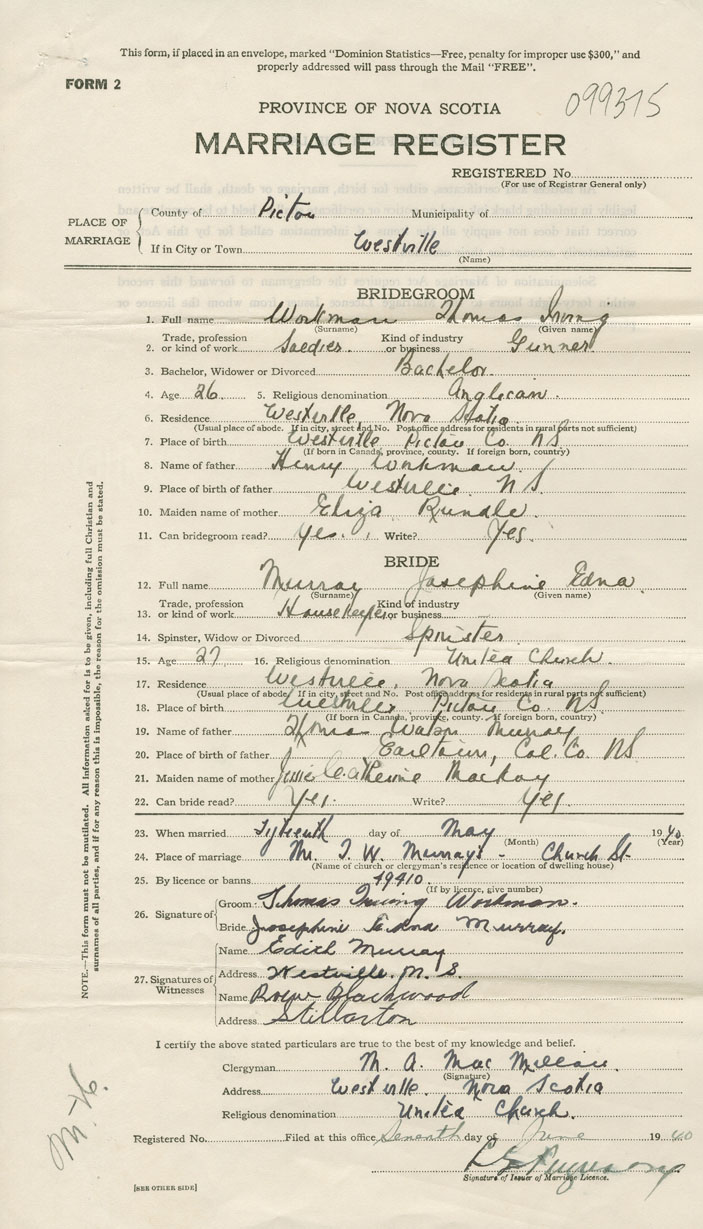 This form, if placed in an envelope, marked "Dominion Statistics—Free, penalty for improper use $300," and
properly addressed will pass through the Mail "FREE".
FORM 2
099315
PROVINCE OF NOVA SCOTIA
MARRIAGE REGISTER
REGISTERED No.
(For use of Registrar General only)
PLACE OF MARRIAGE
County of Pictou Municipality of
If in City or Town Westville
(Name)
BRIDEGROOM
1. Full name Workman Thomas Irving
(Surname) (Given name)
2. Trade, profession or kind of work Soldier Kind of industry or business Gunner
3. Bachelor, Widower or Divorced Bachelor
4. Age 26 5. Religious denomination Anglican
6. Residence Westville, Nova Scotia
(Usual place of abode. If in city, street and No. Post office address for residents in rural parts not sufficient)
7. Place of birth Westville Pictou Co. N.S.
(If born in Canada, province, county. If foreign born, country)
8. Name of father Henry Workman
9. Place of birth of father Westville N.S.
10. Maiden name of mother Eliza Rundle
11. Can bridegroom read? Yes. Write? Yes.
BRIDE
12. Full name Murray Josephine Edna
(Surname) (Given name)
13. Trade, profession or kind of work Housekeeper Kind of industry or business
14. Spinster, Widow or Divorced Spinster
15. Age 27 16. Religious denomination United Church.
17. Residence Westville, Nova Scotia
(Usual place of abode. If in city, street and No. Post office address for residents in rural parts not sufficient)
18. Place of birth Westville Pictou Co. N.S.
(If born in Canada, province, county. If foreign born, country)
19. Name of father Watson Murray
20. Place of birth of father Earltown, Col. Co. N.S.
21. Maiden name of mother Jessie Catherine Mackay
22. Can bride read? Yes. Write? Yes.
23. When married day of May 1940
(Month) (Year)
24. Place of marriage Mr. T. W. Murray's - Church St.
(Name of church or clergyman's residence or location of dwelling house)
25. By licence or banns 49410
(If by licence, give number)
26. Signature of
Groom Thomas Irving Workman.
Bride Josephine Edna Murray.
27. Signatures of Witnesses
Name Edith Murray
Address Westville, N.S.
Name Blackwood
Address Stellarton
I certify the above stated particulars are true to the best of my knowledge and belief.
Clergyman M. A. MacMillan.
(Signature)
Address Westville, Nova Scotia
Religious denomination United Church.
Registered No. Filed at this office Seventh day of June 1940
Signature of Issuer of Marriage Licence.
[SEE OTHER SIDE]
NOTE.—This form must not be mutilated. All information asked for is to be given, including full Christian and
surnames of all parties, and if for any reason this is impossible, the reason for the omission must be stated.